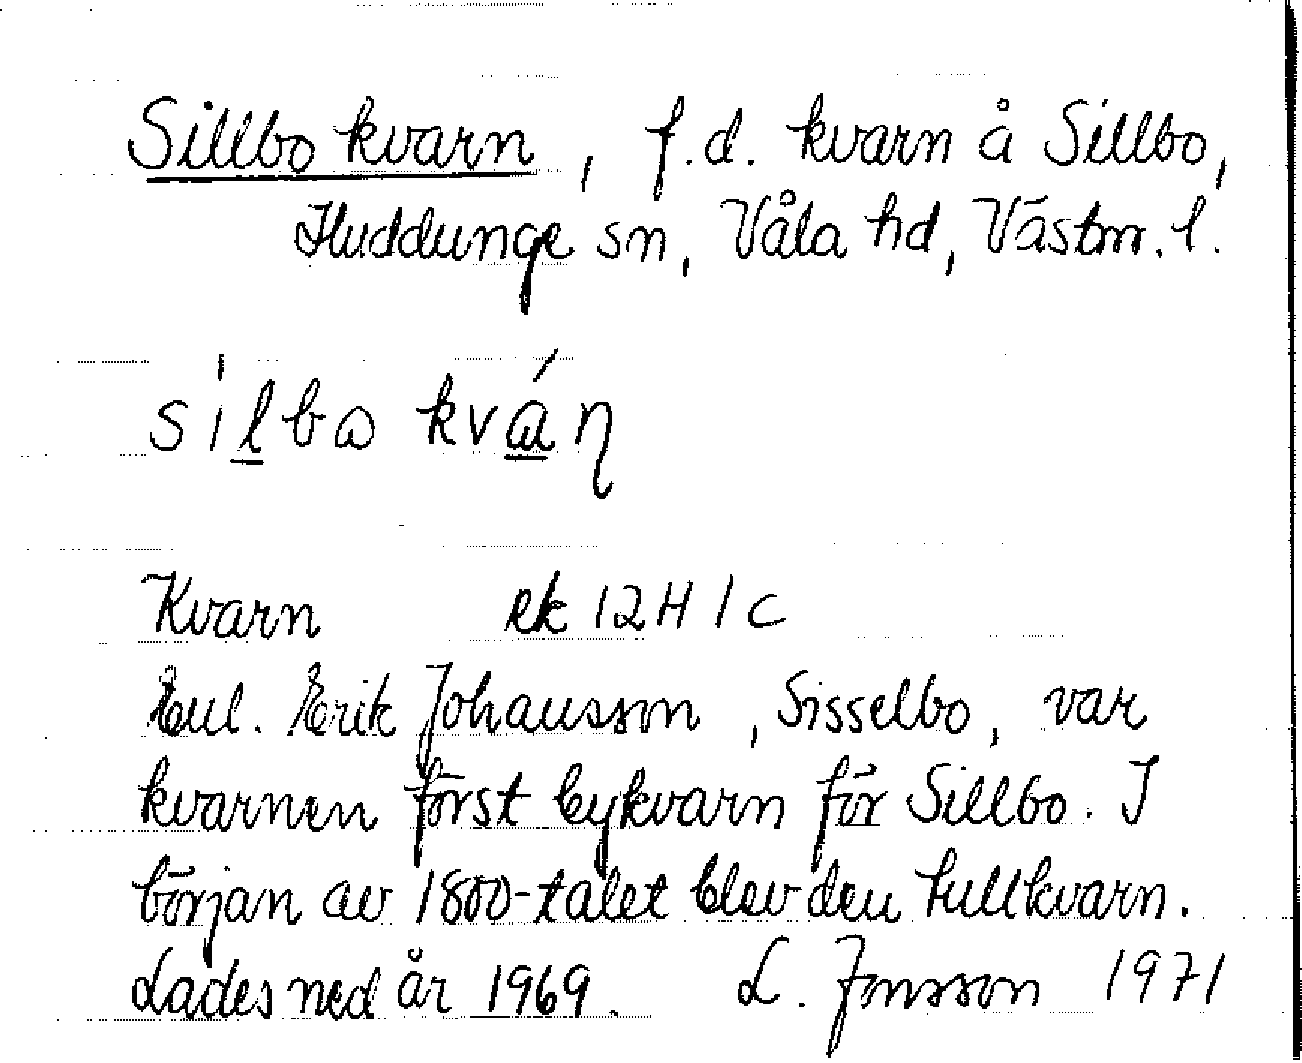 Sillbo kvarn, f.d. kvarn å Sillbo,
Huddunge sn, Våla hd, Västm. l.
sílbω kvá̱ɳ
Kvarn ek 12H 1c
Enl. Erik Johansson, Sisselbo, var
kvarnen först bykvarn för Sillbo. I
början av 1800-talet blev den tullkvarn.
Lades ned år 1969. L. Jonsson 1971